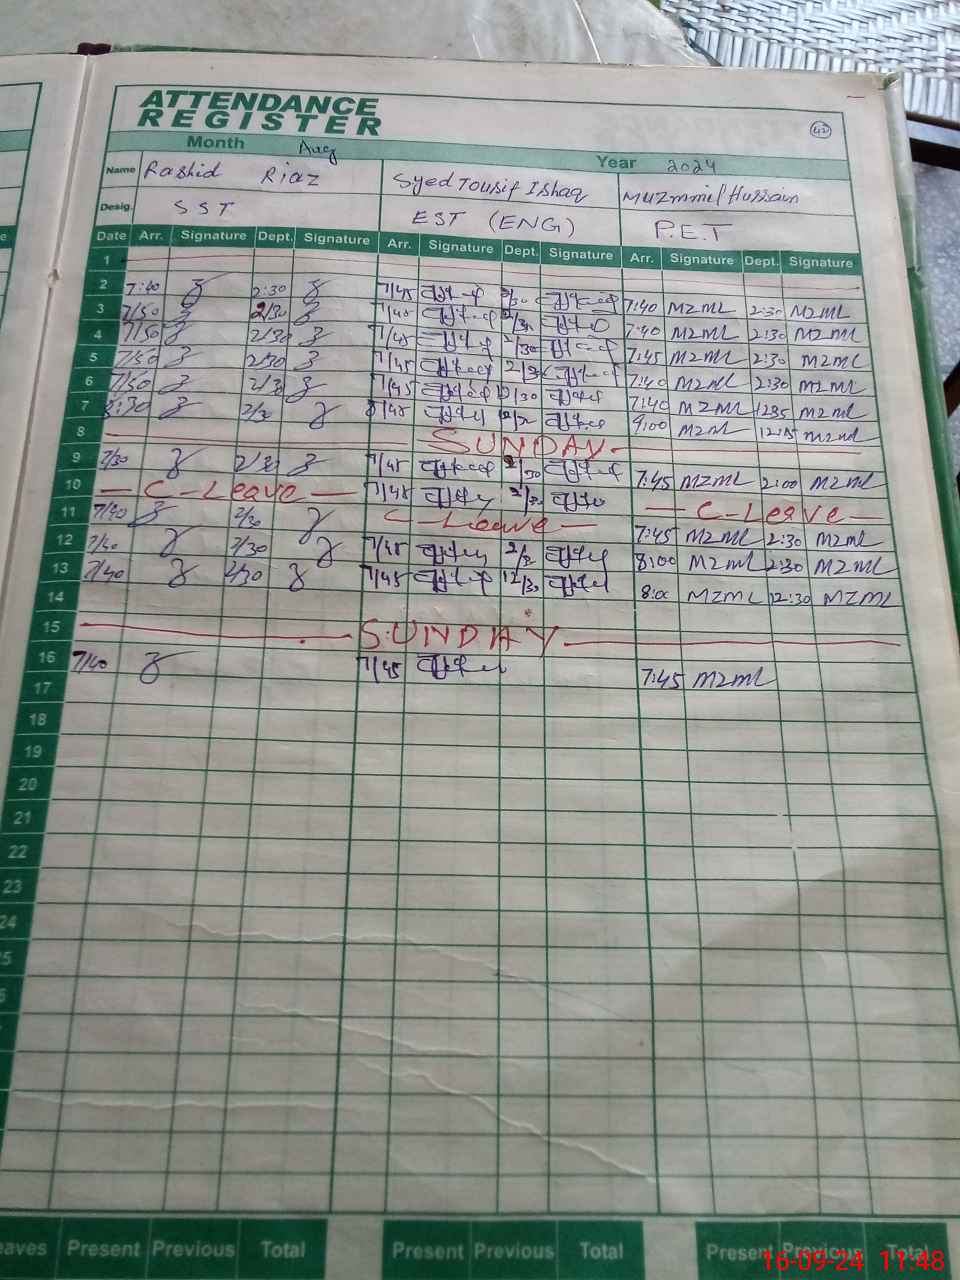 ATTENDANCE
REGISTER
42
Month Aug Year 2024
Name Rashid Riaz Syed Tousif Ishaq Muzmmil Hussain
Desig. SST EST (ENG) P.E.T
Date Arr. Signature Dept. Signature Arr. Signature Dept. Signature Arr. Signature Dept. Signature
1
2 7:40 2:30 7/45 2/30 7:40 MZML 2:30 MZML
3 7/50 2/30 7/45 2/30 7:40 MZML 2:30 MZML
4 7/50 2/30 7/45 2/30 7:45 MZML 2:30 MZML
5 7/50 2/30 7/45 2/30 7:40 MZML 2:30 MZML
6 7/50 2/30 7/45 12/30 7:40 MZML MZML
7 8:30 2/30 8/45 9:00 MZML MZML
8 SUNDAY
9 7/30 2/30 7/45 2/30 7:45 MZML 2:00 MZML
10 C-Leave 7/45 2/30 C-Leave
11 7/40 2/30 C-Leave 7:45 MZML 2:30 MZML
12 7/40 2/30 7/45 8:00 MZML 2:30 MZML
13 7/40 2/30 7/45 12/30 8:00 MZML 12:30 MZML
14
15 SUNDAY
16 7/40 7/45 7:45 MZML
17
18
19
20
21
22
23
24
5
6
eaves Present Previous Total Present Previous Total Present Previous Total
16-09-24 11:48